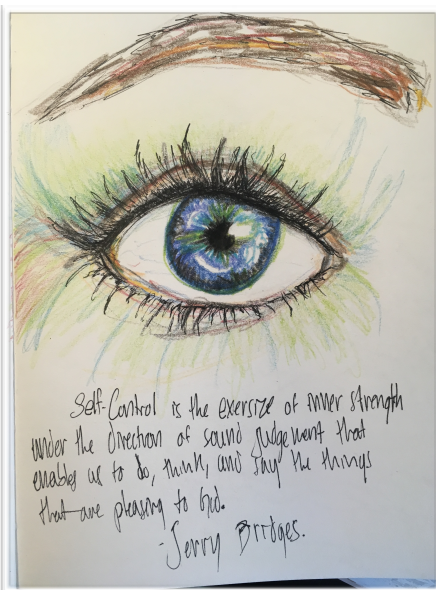 Self-Control is the exersize of inner strength
under the direction of sound judgement that
enables us to do, think, and say the things
that are pleasing to God.
-Jerry Bridges.